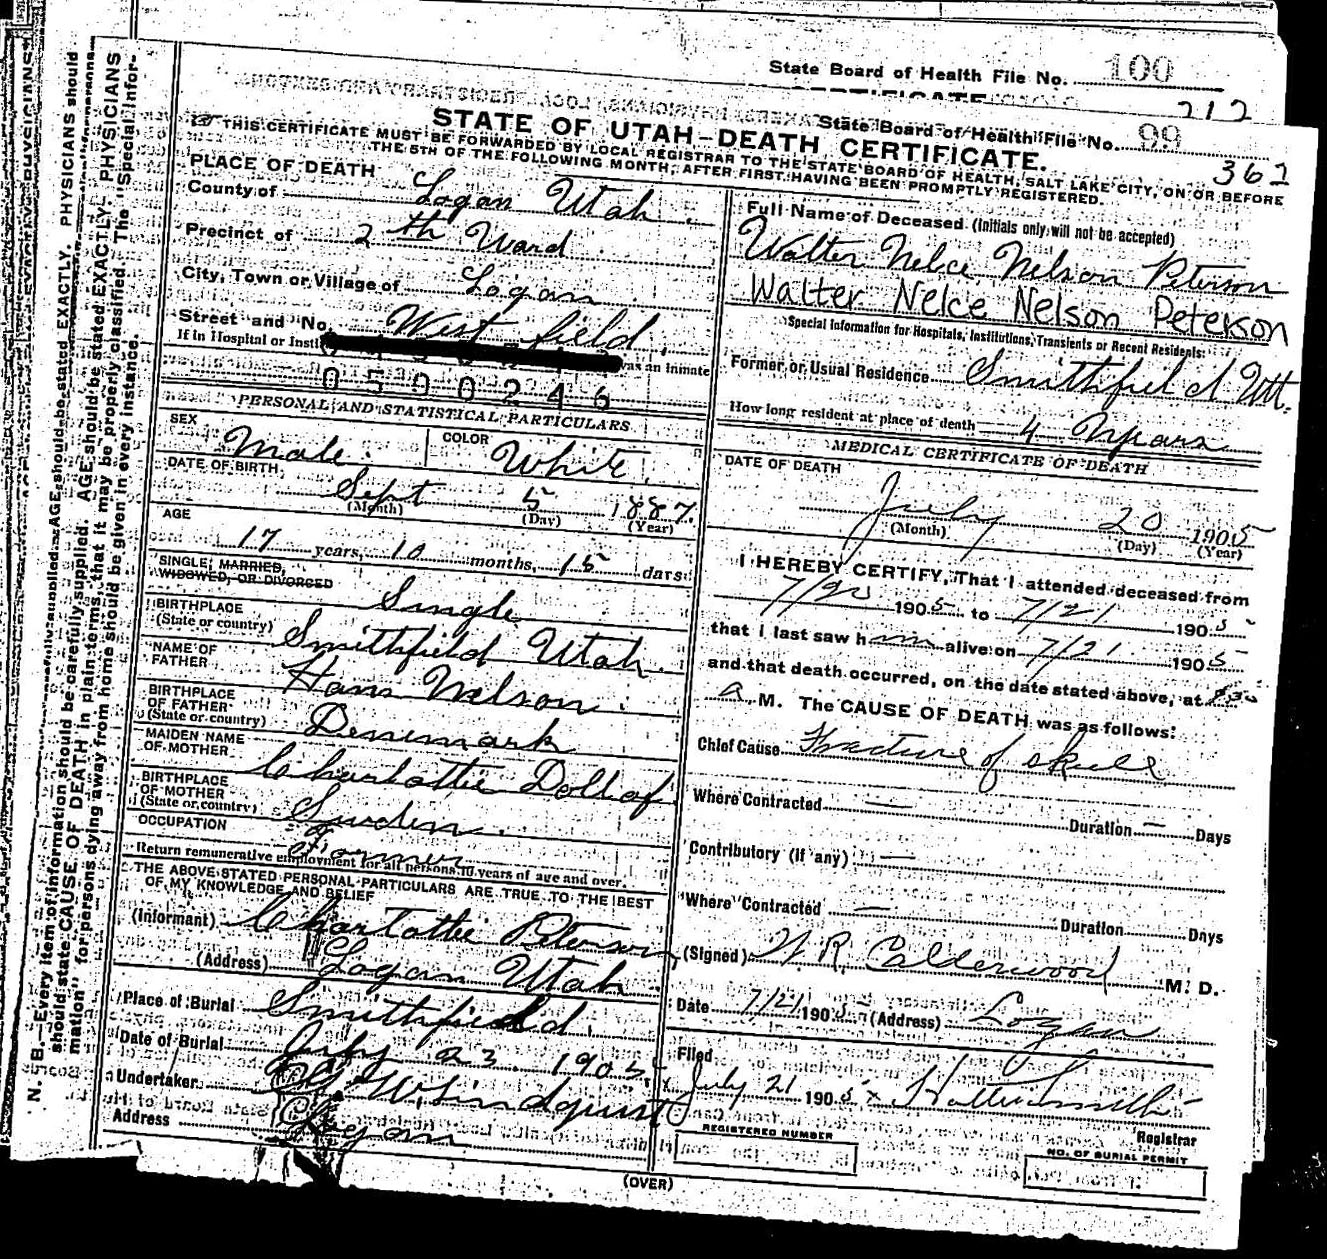 State Board of Health File No. 100
CERTIFICATE
212
State Board of Health File No. 99
362
STATE OF UTAH—DEATH CERTIFICATE.
THIS CERTIFICATE MUST BE FORWARDED BY LOCAL REGISTRAR TO THE STATE BOARD OF HEALTH, SALT LAKE CITY, ON OR BEFORE
THE 5TH OF THE FOLLOWING MONTH, AFTER FIRST HAVING BEEN PROMPTLY REGISTERED.
PLACE OF DEATH
County of Logan Utah.
Precinct of 2th Ward
City, Town or Village of Logan
Street and No. West field.
If in Hospital or was an Inmate
0500246
PERSONAL AND STATISTICAL PARTICULARS
SEX Male. COLOR White.
DATE OF BIRTH
Sept 5 1887.
(Month) (Day) (Year)
AGE
17 years, 10 months, 15 days
SINGLE, MARRIED,
WIDOWED, OR DIVORCED
Single
BIRTHPLACE
(State or country) Smithfield Utah.
NAME OF
FATHER Hans Nelson.
BIRTHPLACE
OF FATHER
(State or country) Denemark
MAIDEN NAME
OF MOTHER Charlottie Dollof
BIRTHPLACE
OF MOTHER
(State or country) Sweden.
OCCUPATION Farmer
Return remunerative employment for all persons 10 years of age and over.
THE ABOVE STATED PERSONAL PARTICULARS ARE TRUE TO THE BEST
OF MY KNOWLEDGE AND BELIEF
(Informant) Charlottie Peterson
(Address) Logan Utah.
Place of Burial Smithfield.
Date of Burial July 23. 1905.
Undertaker W. Lindquist
Address Logan
Full Name of Deceased (Initials only will not be accepted)
Walter Nelce Nelson Peterson
Walter Nelce Nelson Peterson
Special Information for Hospitals, Institutions, Transients or Recent Residents:
Former or Usual Residence Smithfield Utt.
How long resident at place of death 4 Years
MEDICAL CERTIFICATE OF DEATH
DATE OF DEATH
July 20 1905
(Month) (Day) (Year)
I HEREBY CERTIFY, That I attended deceased from
7/20 1905 to 7/21 1905
that I last saw him alive on 7/21 1905
and that death occurred, on the date stated above, at 830
a M. The CAUSE OF DEATH was as follows:
Chief Cause Fracture of skull
Where Contracted — Duration — Days
Contributory (If any) —
Where Contracted —
Duration Days
(Signed) W. R. Calderwood M. D.
Date 7/21 1905 (Address) Logan
Filed
July 21 1905
Registrar
REGISTERED NUMBER
NO. OF BURIAL PERMIT
(OVER)
N. B.—Every item of information should be carefully supplied. AGE should be stated EXACTLY. PHYSICIANS
should state CAUSE OF DEATH in plain terms, that it may be properly classified. The "Special Infor-
mation" for persons dying away from home should be given in every instance.